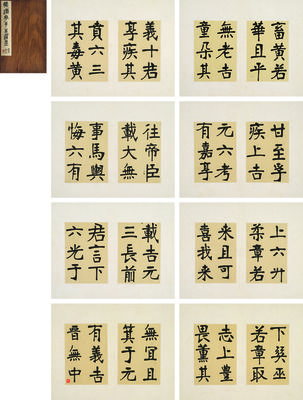 畜黄若
華且平
無老吉
童朶其
義十苦
享疾其
賁六三
其毒黄
甘至孚
疾上吉
元六考
有嘉享
往帝臣
載大無
事馬輿
悔六有
上六升
來章若
來且可
喜我來
載吉元
三長前
君言下
六光于
下巽巫
若章取
志上豐
畏薰其
無宜且
箕于元
有義吉
晉無中